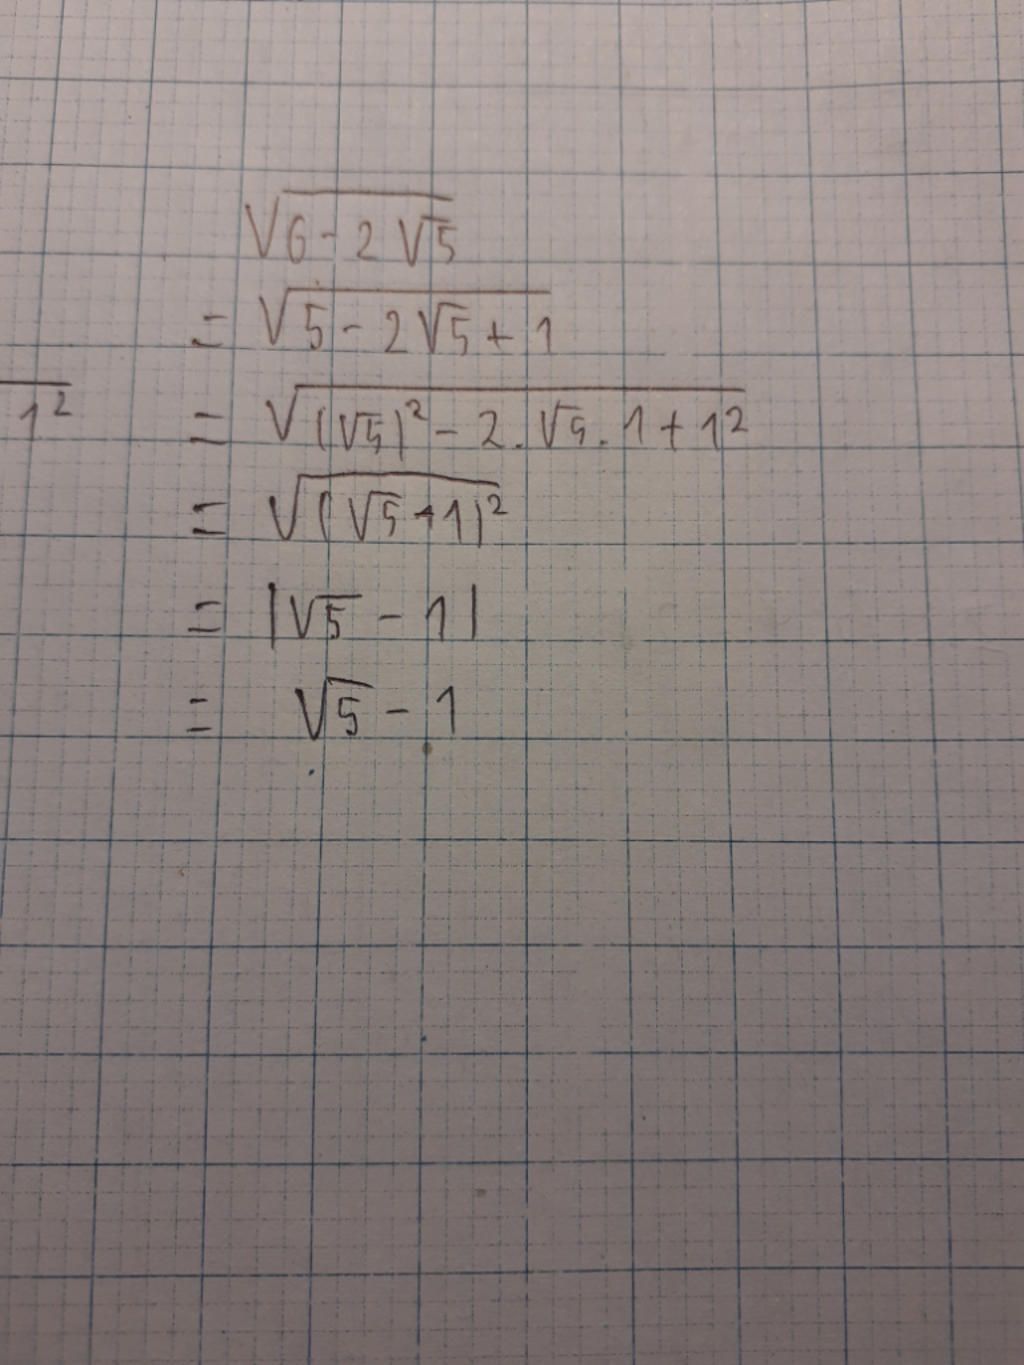 √(6 - 2√5)
= √(5 - 2√5 + 1)
1² = √((√5)² - 2.√5.1 + 1²)
= √((√5 + 1)²)
= |√5 - 1|
= √5 - 1